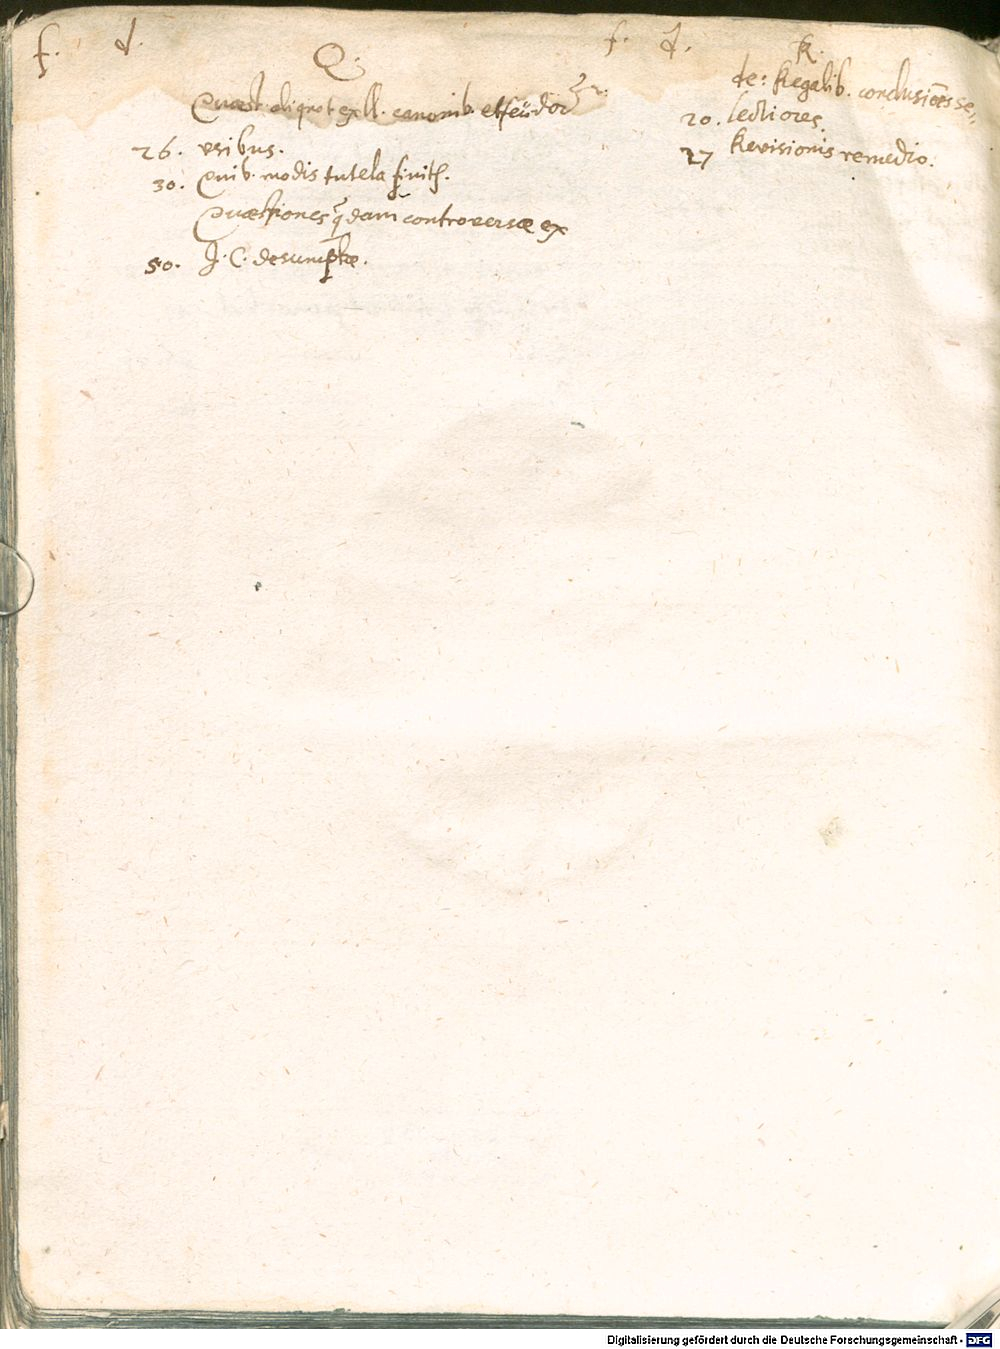 f. d. Q.
Quæst. aliquot ex ll. canonib. et feudor
26. vsibus.
30. Quib. modis tutela finit.
Quæstiones q̄dam controversæ ex
50. J. C. desumptæ.
f. d. R.
de: Regalib. conclusiōes se„
20. lectiores.
27 Revisionis remedio.
Digitalisierung gefördert durch die Deutsche Forschungsgemeinschaft - DFG